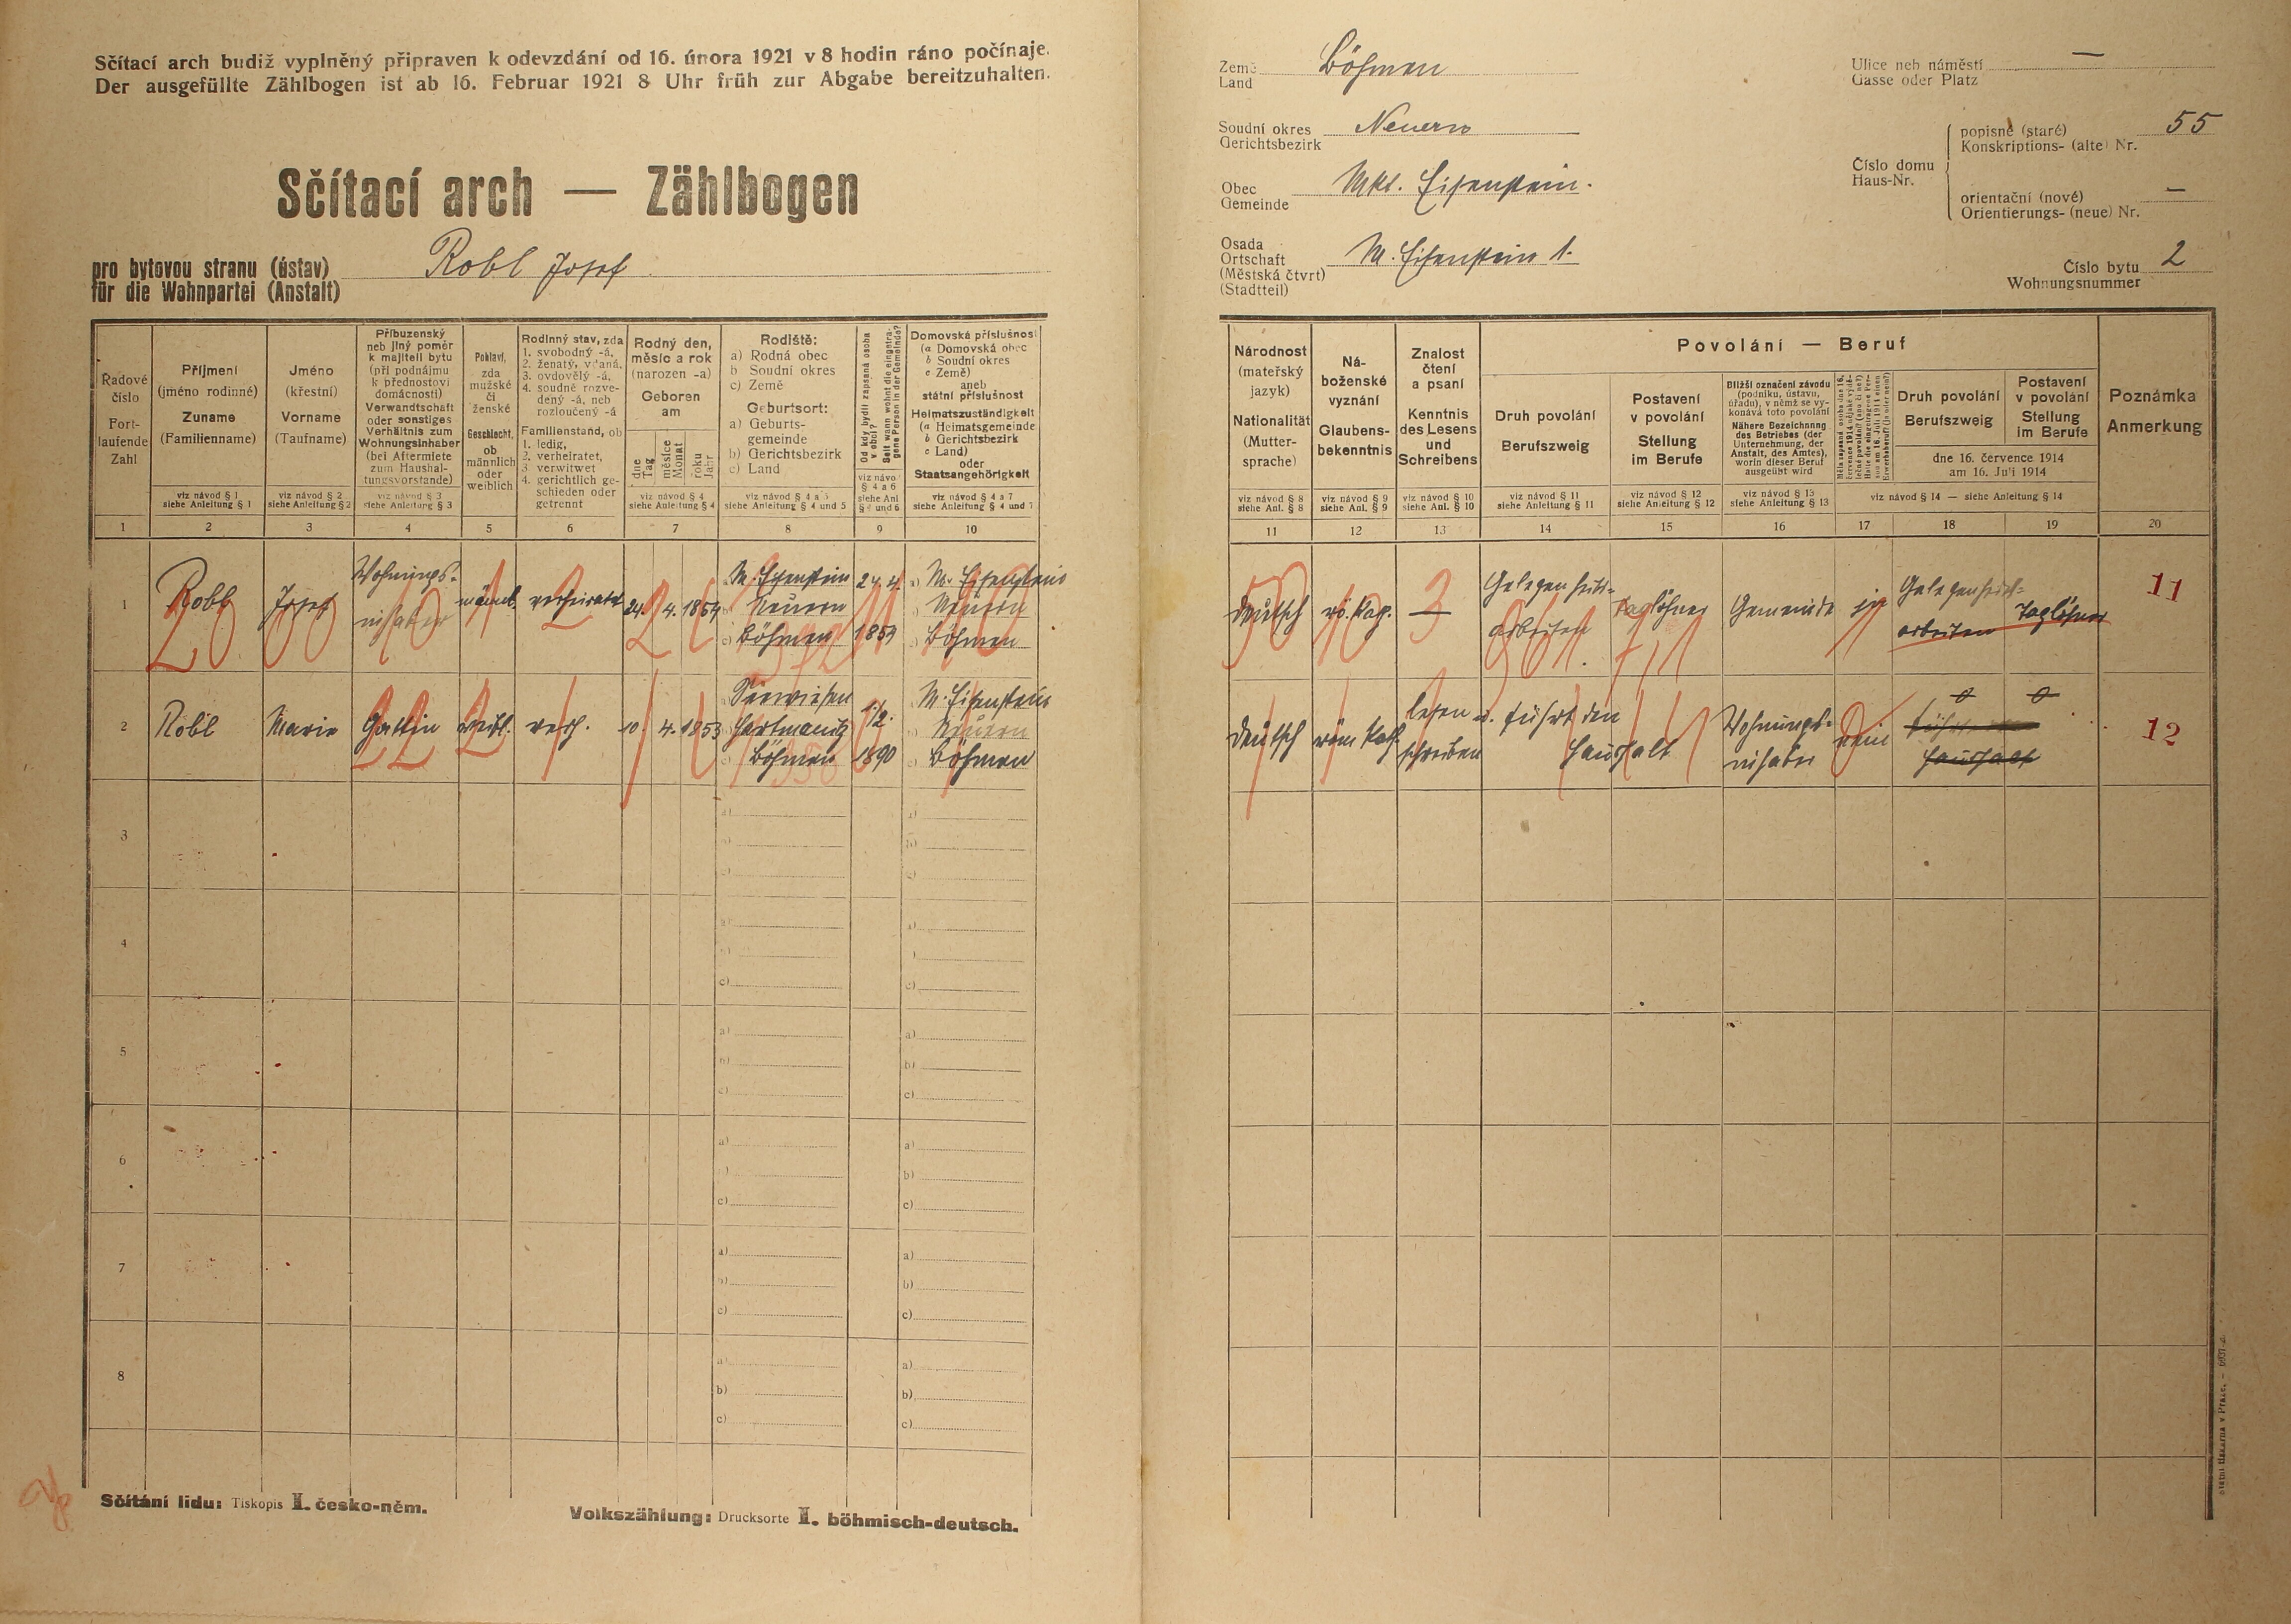 Sčítací arch budiž vyplněný připraven k odevzdání od 16. února 1921 v 8 hodin ráno počínaje.
Der ausgefüllte Zählbogen ist ab 16. Februar 1921 8 Uhr früh zur Abgabe bereitzuhalten.
Sčítací arch — Zählbogen
pro bytovou stranu (ústav)
für die Wohnpartei (Anstalt)
Robl Josef
Země
Land
Böhmen
Soudní okres
Gerichtsbezirk
Neuern
Obec
Gemeinde
Mkt. Eisenstein.
Osada
Ortschaft
(Městská čtvrt)
(Stadtteil)
M. Eisenstein 1.
Ulice neb náměstí —
Gasse oder Platz
Číslo domu
Haus-Nr.
popisné (staré)
Konskriptions- (alte) Nr.
55
orientační (nové)
Orientierungs- (neue) Nr.
—
Číslo bytu
Wohnungsnummer
2
Řadové
číslo
Fort-
laufende
Zahl
1
Příjmení
(jméno rodinné)
Zuname
(Familienname)
viz návod § 1
siehe Anleitung § 1
2
Jméno
(křestní)
Vorname
(Taufname)
viz návod § 2
siehe Anleitung § 2
3
Příbuzenský
neb jiný poměr
k majiteli bytu
(při podnájmu
k přednostovi
domácnosti)
Verwandtschaft
oder sonstiges
Verhältnis zum
Wohnungsinhaber
(bei Aftermiete
zum Haushal-
tungsvorstande)
viz návod § 3
siehe Anleitung § 3
4
Pohlaví,
zda
mužské
či
ženské
Geschlecht,
ob
männlich
oder
weiblich
5
Rodinný stav, zda
1. svobodný -á,
2. ženatý, vdaná,
3. ovdovělý -á,
4. soudně rozve-
dený -á, neb
rozloučený -á
Familienstand, ob
1. ledig,
2. verheiratet,
3 verwitwet
4. gerichtlich ge-
schieden oder
getrennt
6
Rodný den,
měsíc a rok
(narozen -a)
Geboren
am
dne
Tag
měsíce
Monat
roku
Jahr
viz návod § 4
siehe Anleitung § 4
7
Rodiště:
a) Rodná obec
b Soudní okres
c) Země
Geburtsort:
a) Geburts-
gemeinde
b) Gerichtsbezirk
c) Land
viz návod § 4 a 5
siehe Anleitung § 4 und 5
8
Od kdy bydlí zapsaná osoba
v obci?
Seit wann wohnt die eingetra-
gene Person in der Gemeinde?
viz návod
§ 4 a 6
siehe Anl
§ 4 und 6
9
Domovská příslušnost
(a Domovská obec
b Soudní okres
c Země)
aneb
státní příslušnost
Heimatszuständigkeit
(a Heimatsgemeinde
b Gerichtsbezirk
c Land)
oder
Staatsangehörigkeit
viz návod § 4 a 7
siehe Anleitung § 4 und 7
10
Národnost
(mateřský
jazyk)
Nationalität
(Mutter-
sprache)
viz návod § 8
siehe Anl. § 8
11
Ná-
boženské
vyznání
Glaubens-
bekenntnis
viz návod § 9
siehe Anl. § 9
12
Znalost
čtení
a psaní
Kenntnis
des Lesens
und
Schreibens
viz návod § 10
siehe Anl. § 10
13
Povolání — Beruf
Druh povolání
Berufszweig
viz návod § 11
siehe Anleitung § 11
14
Postavení
v povolání
Stellung
im Berufe
viz návod § 12
siehe Anleitung § 12
15
Bližší označení závodu
(podniku, ústavu,
úřadu), v němž se vy-
konává toto povolání
Nähere Bezeichnung
des Betriebes (der
Unternehmung, der
Anstalt, des Amtes),
worin dieser Beruf
ausgeübt wird
viz návod § 13
siehe Anleitung § 13
16
17
Druh povolání
Berufszweig
Postavení
v povolání
Stellung
im Berufe
dne 16. července 1914
am 16. Juli 1914
viz návod § 14 — siehe Anleitung § 14
18
19
Poznámka
Anmerkung
20
1
Robl
Josef
Wohnungs-
inhaber
männl.
verheiratet
24. 4. 1854
M. Eisenstein
Neuern
Böhmen
24. 4.
1854
M. Eisenstein
Neuern
Böhmen
deutsch
rö. kath.
—
Gelegenheits-
arbeiten
Taglöhner
Gemeinde
ja
Gelegenheits-
arbeiten
Taglöhner
11
2
Robl
Marie
Gattin
weibl.
verh.
10. 4. 1853
Seewiesen
Hartmanitz
Böhmen
1/2.
1890
M. Eisenstein
Neuern
Böhmen
deutsch
röm. kath.
lesen u.
schreiben
führt den
Haushalt
Wohnungs-
inhaber
nein
Haushalt
12
3
4
5
6
7
8
Sčítání lidu: Tiskopis I. česko-něm.
Volkszählung: Drucksorte I. böhmisch-deutsch.